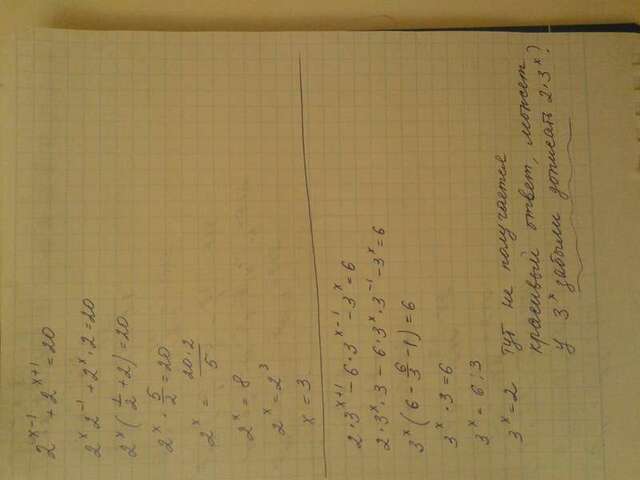 2^{x-1} + 2^{x+1} = 20
2^x 2^{-1} + 2^x · 2 = 20
2^x (1/2 + 2) = 20
2^x · 5/2 = 20
2^x = 20·2/5
2^x = 8
2^x = 2^3
x = 3
2·3^{x+1} - 6·3^{x-1} - 3^x = 6
2·3^x·3 - 6·3^x·3^{-1} - 3^x = 6
3^x (6 - 6/3 - 1) = 6
3^x · 3 = 6
3^x = 6:3
3^x = 2
тут не получается
красивый ответ, может
у 3^x забыли дописать 2·3^x?